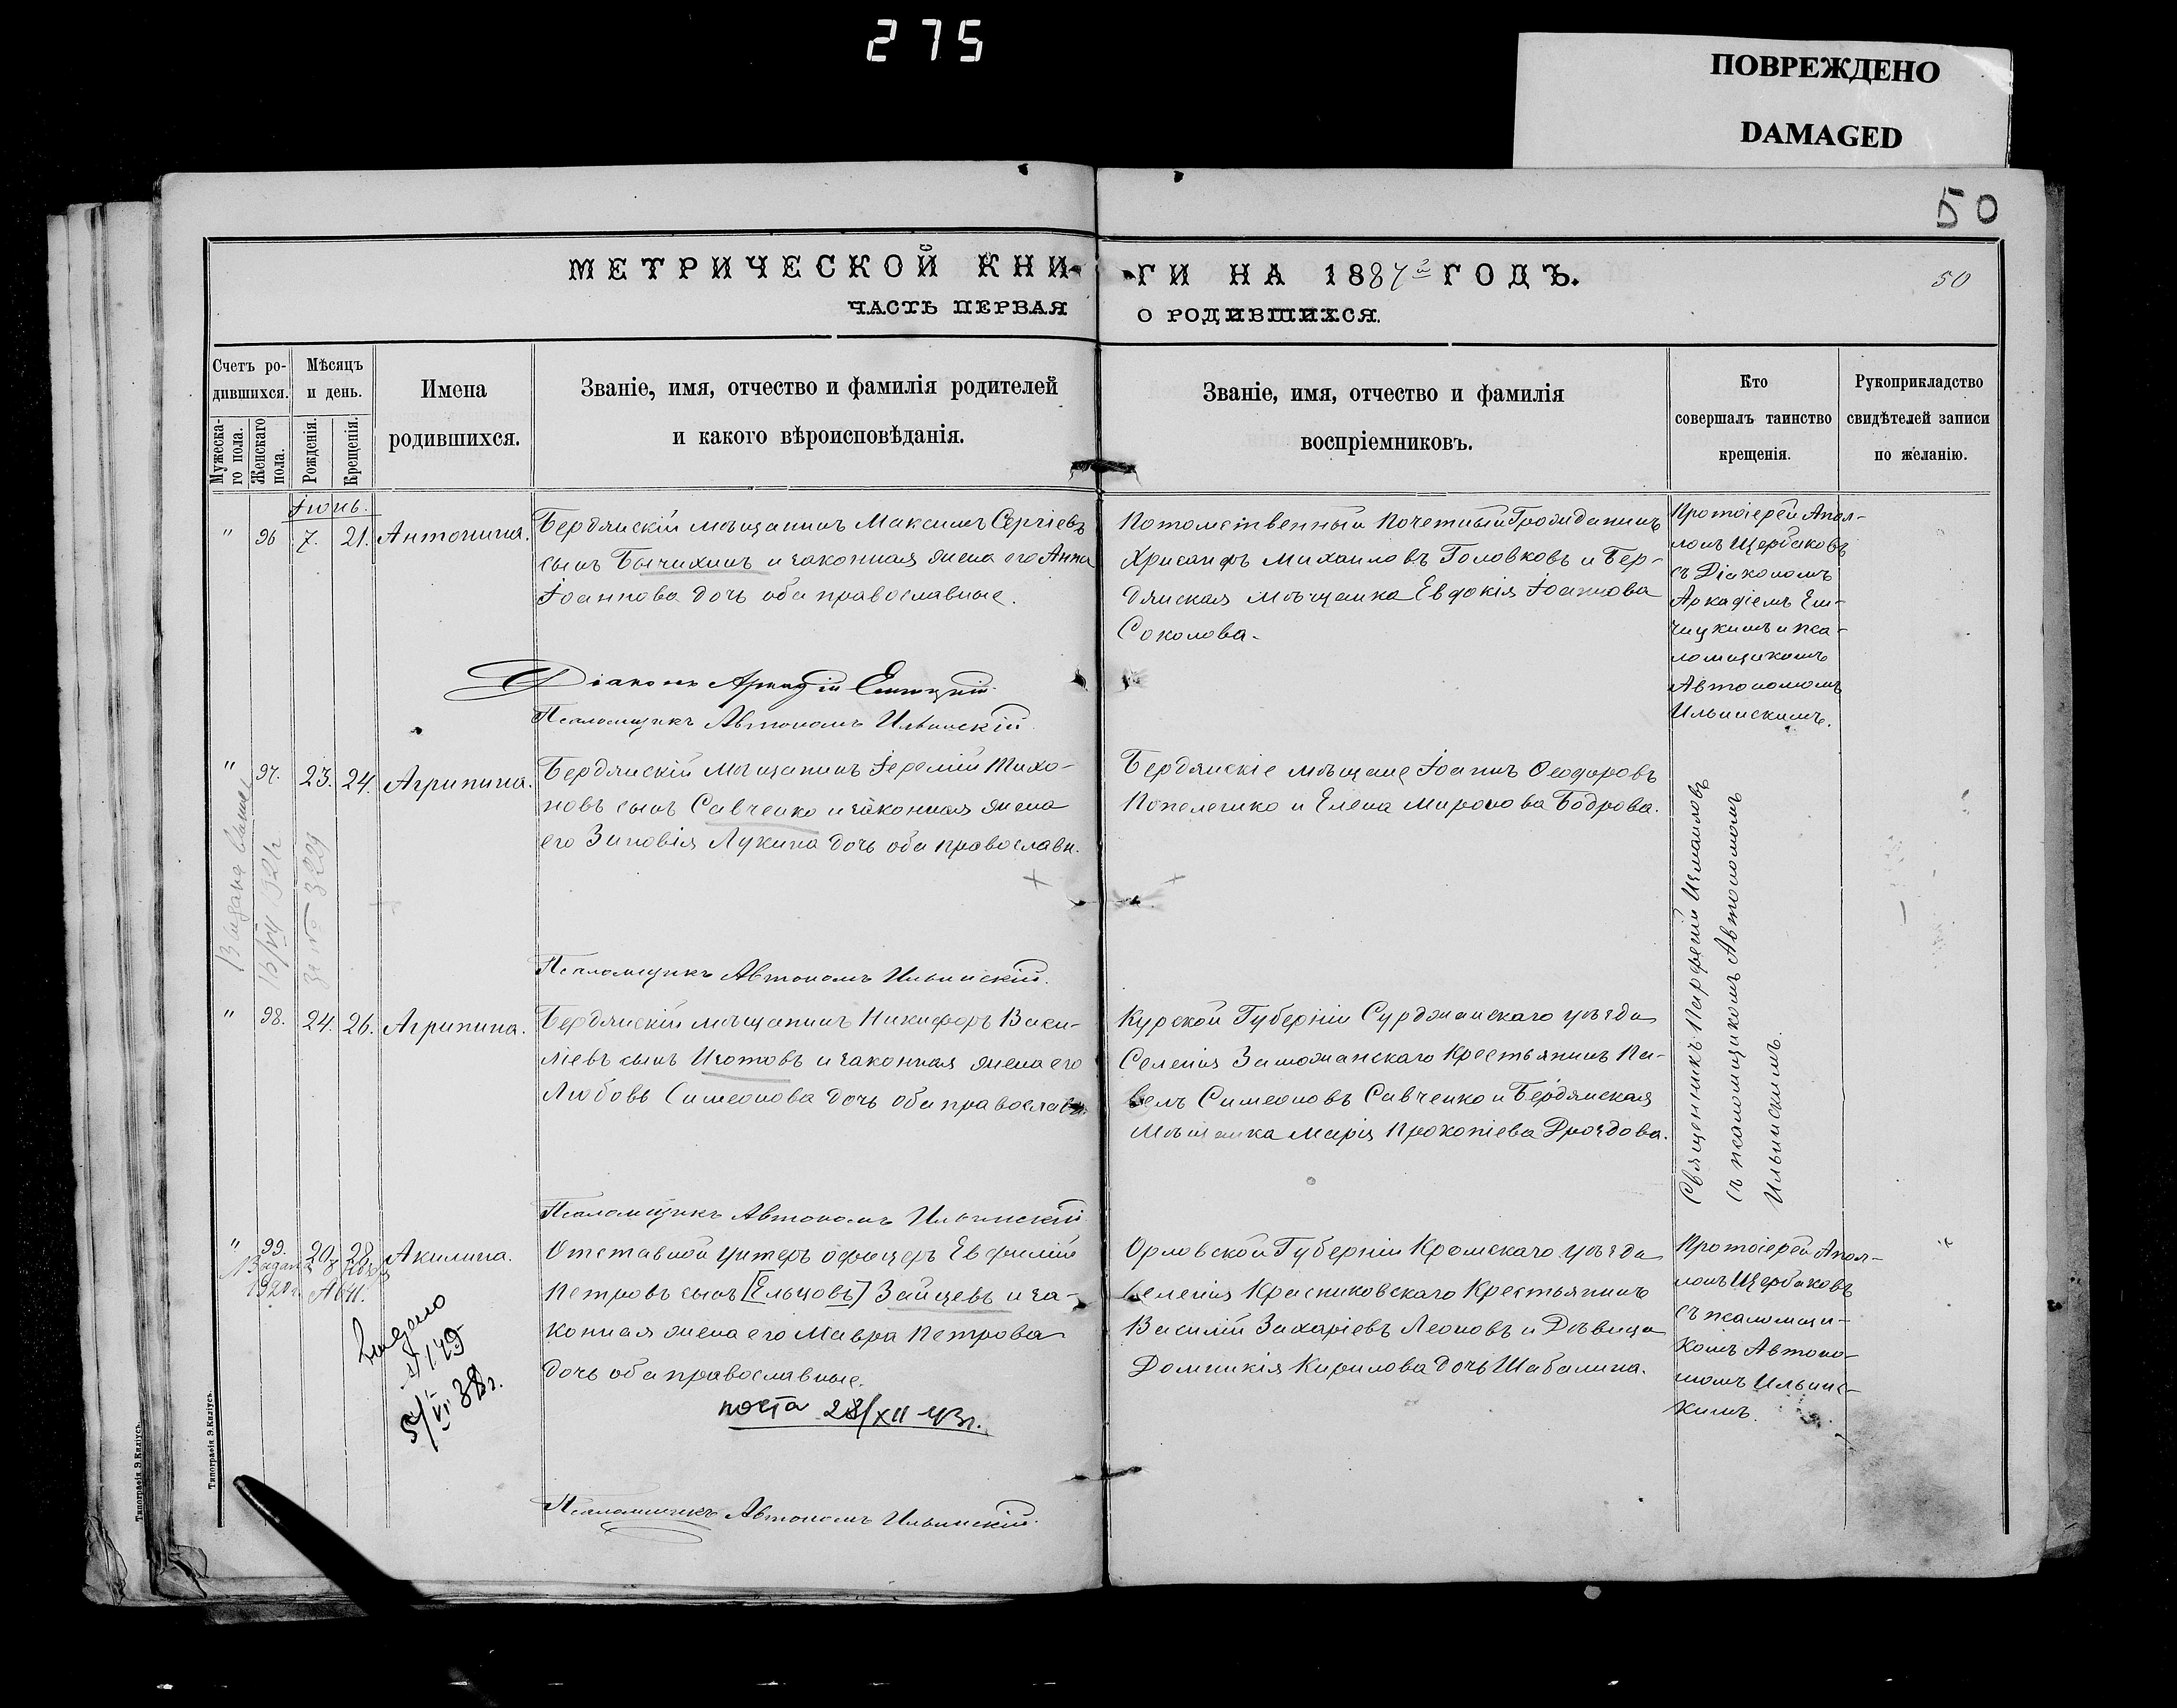 275
ПОВРЕЖДЕНО
DAMAGED
50
МЕТРИЧЕСКОЙ КНИ-
ЧАСТЬ ПЕРВАЯ
-ГИ НА 1887й ГОДЪ.
О РОДИВШИХСЯ.
50
Счетъ ро-
дившихся.
Мужеска-
го пола.
Женскаго
пола.
Мѣсяцъ
и день.
Рожденія.
Крещенія.
Имена
родившихся.
Званіе, имя, отчество и фамилія родителей
и какого вѣроисповѣданія.
Званіе, имя, отчество и фамилія
воспріемниковъ.
Кто
совершалъ таинство
крещенія.
Рукоприкладство
свидѣтелей записи
по желанію.
Іюнь.
" 96 7. 21. Антонина.
Бердянскій мѣщанинъ Максимъ Сергіевъ
сынъ Бычихинъ и законная жена его Анна
Іоаннова дочь оба православные.
Діаконъ Аркадій
Псаломщикъ Автономъ Ильинскій
Потомственный Почетный Гражданинъ
Хрисанфъ Михаиловъ Головковъ и Бер-
дянская мѣщанка Евдокія Іоаннова
Соколова.
Протоіерей Апол-
лонъ Щербаковъ
съ Діакономъ
Аркадіемъ
и пса-
ломщикомъ
Автономомъ
Ильинскимъ.
" 97. 23. 24. Агрипина.
Бердянскій мѣщанинъ Іеремій Тихо-
новъ сынъ Савченко и законная жена
его Зиновія Лукина дочь оба православн.
Псаломщикъ Автономъ Ильинскій.
Бердянскіе мѣщане Іоаннъ Ѳеодоровъ
и Елена Миронова Бодрова.
Священникъ Парфеній Измаиловъ
съ псаломщикомъ Автономомъ
Ильинскимъ.
за № 3229
" 98. 24. 26. Агрипина.
Бердянскій мѣщанинъ Никифоръ Васи-
ліевъ сынъ Изотовъ и законная жена его
Любовь Симеонова дочь оба православн.
Псаломщикъ Автономъ Ильинскій
Курской Губерніи Суджанскаго уѣзда
Селенія Крестьянинъ Па-
велъ Симеоновъ Савченко и Бердянская
Мѣщанка Марія Прокопіева Дроздова.
" 99. 20. 28. Акилина.
Отставной унтеръ офицеръ Евфимій
Петровъ сынъ [Ельцовъ] Зайцевъ и за-
конная жена его Мавра Петрова
дочь оба православные.
28/XII 43г.
Псаломщикъ Автономъ Ильинскій.
№ 149
5/VI 38г.
Орловской Губерніи Кромскаго уѣзда
селенія Красниковскаго Крестьянинъ
Василій Захаріевъ Леоновъ и Дѣвица
Домникія Кирилова дочь Шабалина.
Протоіерей Апол-
лонъ Щербаковъ
съ псаломщи-
комъ Автоно-
момъ Ильинс-
кимъ.
Типографія Э. Килiусъ.
Типографія Э. Килiусъ.